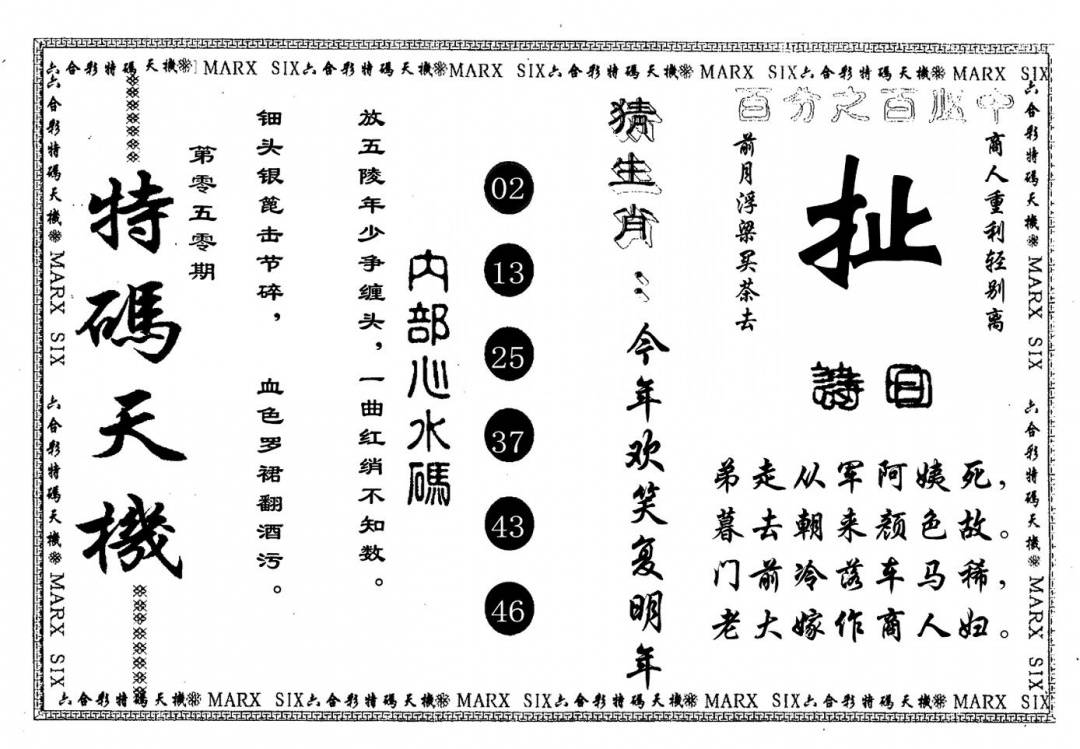 六合彩特碼天機 MARX SIX六合彩特碼天機MARX SIX六合彩特碼天機 MARX SIX六合彩特碼天機 MARX SIX
百分之百必中
商人重利轻别离
扯
前月浮梁买茶去
詩曰
弟走从军阿姨死，
暮去朝来颜色故。
门前冷落车马稀，
老大嫁作商人妇。
猜生肖：今年欢笑复明年
02
13
25
37
43
46
内部心水碼
放五陵年少争缠头，一曲红绡不知数。
钿头银篦击节碎，血色罗裙翻酒污。
第零五零期
特碼天機
六合彩特碼天機 MARX SIX 六合彩特碼天機 MARX SIX
六合彩特碼天機 MARX SIX 六合彩特碼天機 MARX SIX
六合彩特碼天機 MARX SIX六合彩特碼天機 MARX SIX六合彩特碼天機 MARX SIX六合彩特碼天機 MARX SIX